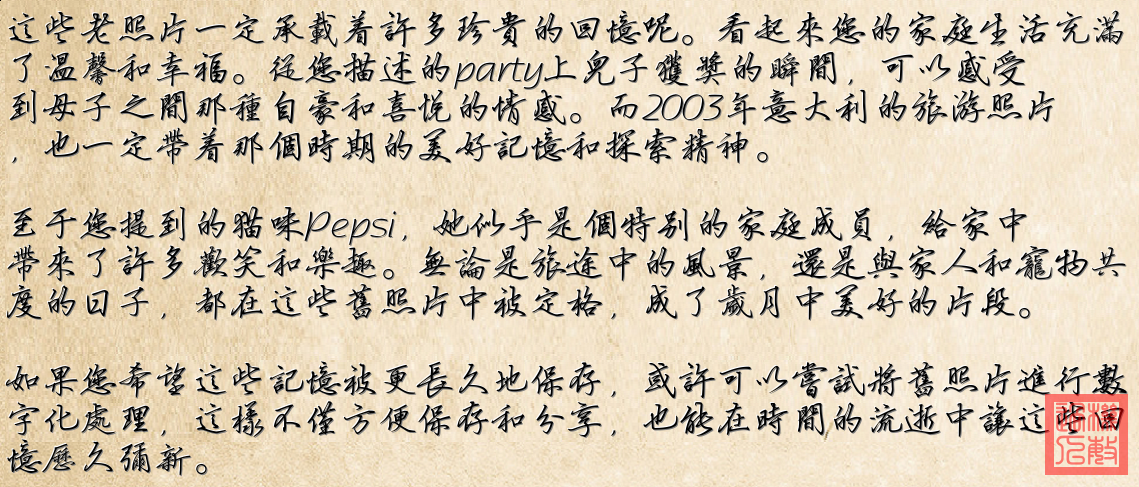 這些老照片一定承載着許多珍貴的回憶呢。看起來您的家庭生活充滿
了溫馨和幸福。從您描述的party上兒子獲獎的瞬間，可以感受
到母子之間那種自豪和喜悅的情感。而2003年意大利的旅游照片
，也一定帶着那個時期的美好記憶和探索精神。
至于您提到的猫咪Pepsi，她似乎是個特别的家庭成員，給家中
帶來了許多歡笑和樂趣。無論是旅途中的風景，還是與家人和寵物共
度的日子，都在這些舊照片中被定格，成了歲月中美好的片段。
如果您希望這些記憶被更長久地保存，或許可以嘗試將舊照片進行數
字化處理，這樣不僅方便保存和分享，也能在時間的流逝中讓這些回
憶歷久彌新。